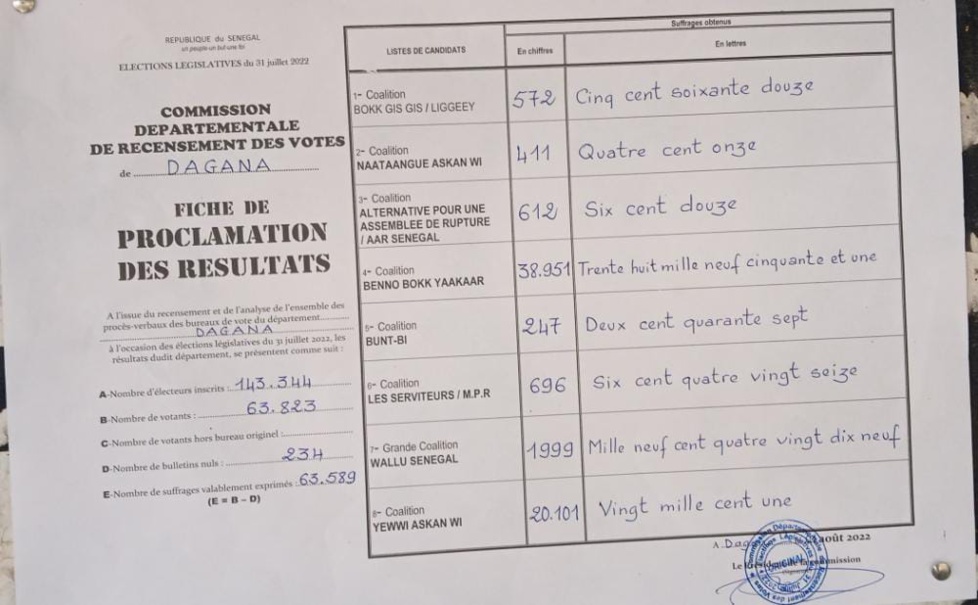 REPUBLIQUE du SENEGAL
un peuple-un but-une foi
ELECTIONS LEGISLATIVES du 31 juillet 2022
COMMISSION
DEPARTEMENTALE
DE RECENSEMENT DES VOTES
de DAGANA
FICHE DE
PROCLAMATION
DES RESULTATS
A l'issue du recensement et de l'analyse de l'ensemble des
procès-verbaux des bureaux de vote du département
DAGANA
à l'occasion des élections législatives du 31 juillet 2022, les
résultats dudit département, se présentent comme suit :
A-Nombre d'électeurs inscrits : 143.344
B-Nombre de votants : 63.823
C-Nombre de votants hors bureau originel :
D-Nombre de bulletins nuls : 234
E-Nombre de suffrages valablement exprimés : 63.589
(E = B – D)
LISTES DE CANDIDATS
Suffrages obtenus
En chiffres
En lettres
1- Coalition
BOKK GIS GIS / LIGGEEY
572 Cinq cent soixante douze
2- Coalition
NAATAANGUE ASKAN WI
411 Quatre cent onze
3- Coalition
ALTERNATIVE POUR UNE
ASSEMBLEE DE RUPTURE
/ AAR SENEGAL
612 Six cent douze
4- Coalition
BENNO BOKK YAAKAAR
38.951 Trente huit mille neuf cinquante et une
5- Coalition
BUNT-BI
247 Deux cent quarante sept
6- Coalition
LES SERVITEURS / M.P.R
696 Six cent quatre vingt seize
7- Grande Coalition
WALLU SENEGAL
1999 Mille neuf cent quatre vingt dix neuf
8- Coalition
YEWWI ASKAN WI
20.101 Vingt mille cent une
A Dag août 2022
Le
ORIGINAL